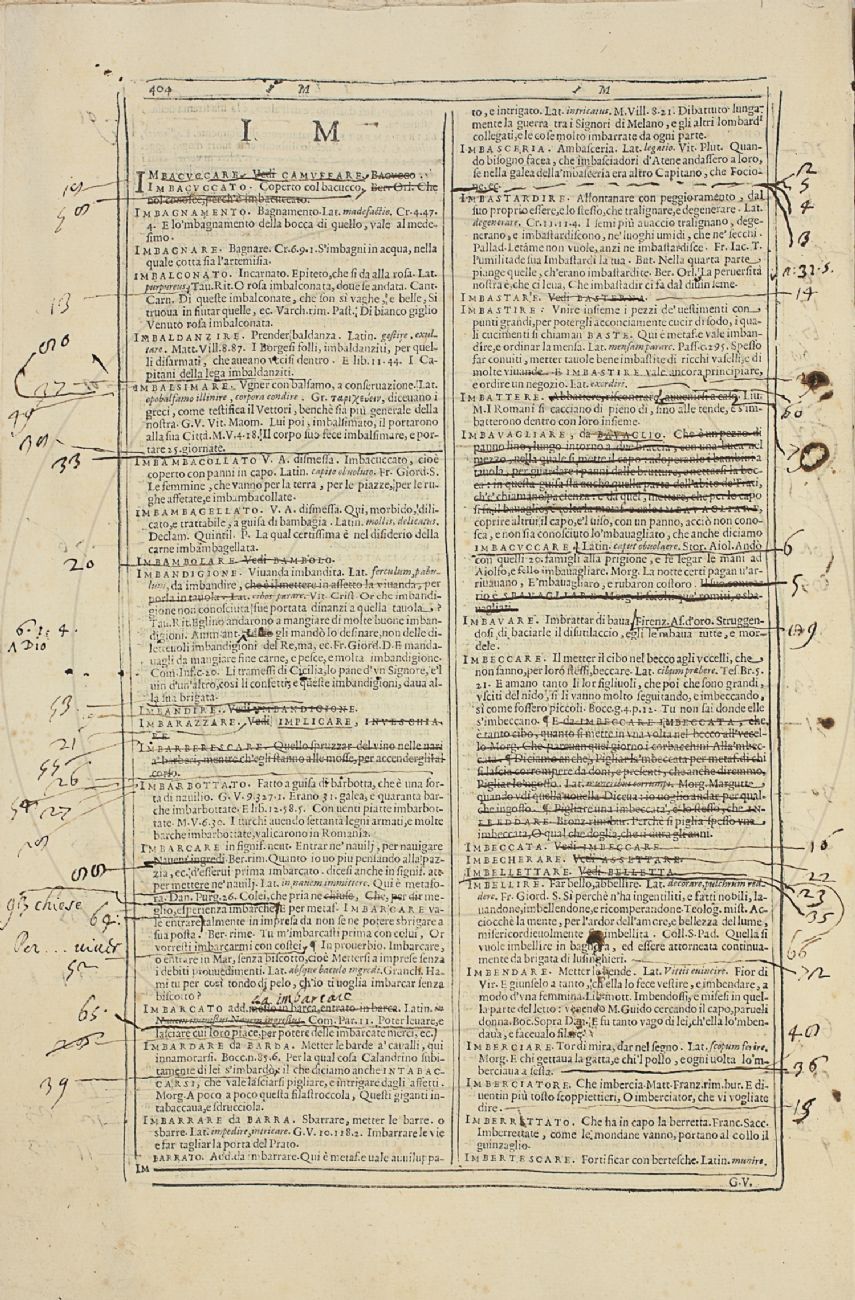 404
I M
I M
I M
IMBACUCCARE. Vedi CAMUFFARE, BACUCCO.
IMBACUCCATO. Coperto col bacucco, Ber. Orl. Che
non conosce, perch'è imbacuccato.
IMBAGNAMENTO. Bagnamento. Lat. madefactio. Cr. 4. 47.
4. E lo'mbagnamento della bocca di quello, vale al mede-
simo.
IMBAGNARE. Bagnare. Cr. 6. 9. 1. S'imbagni in acqua, nella
quale cotta sia l'artemisia.
IMBALCONATO. Incarnato. Epiteto, che si da alla rosa. Lat.
purpureus. Tau. Rit. O rosa imbalconata, doue se andata. Cant.
Carn. Di queste imbalconate, che son sì vaghe, e belle, Si
truoua in fiutar quelle, ec. Varch. rim. Past. Di bianco giglio
Venuto rosa imbalconata.
IMBALDANZIRE. Prender baldanza. Latin. gestire, exul-
tare. Matt. Vill. 8. 87. I Borgesi folli, imbaldanziti, per quel-
li disarmati, che aueano vccisi dentro. E lib. 11. 44. I Ca-
pitani della lega imbaldanziti.
IMBALSIMARE. Vgner con balsamo, a conseruazione. Lat.
opobalsamo illinire, corpora condire. Gr. ταριχεύειν, diceuano i
greci, come testifica il Vettori, benchè sia più generale della
nostra. G. V. Vit. Maom. Lui poi, imbalsimato, il portarono
alla sua Città. M. V. 4. 18. Il corpo suo fece imbalsimare, e por-
tare 25. giornate.
IMBAMBACOLLATO V. A. dismessa. Imbacuccato, cioè
coperto con panni in capo. Latin. capite obuoluto. Fr. Giord. S.
Le femmine, che vanno per la terra, per le piazze, per le ru-
ghe affetate, e imbambacollate.
IMBAMBAGELLATO. V. A. dismessa. Qui, morbido, dili-
cato, e trattabile, a guisa di bambagia. Latin. mollis, delicatus.
Declam. Quintil. P. La qual certissima è nel disiderio della
carne imbambagellata.
IMBAMBOLARE. Vedi BAMBOLO.
IMBANDIGIONE. Viuanda imbandita. Lat. ferculum, pabu-
lum, da imbandire, che è il mettere in assetto la viuanda, per
porla in tauola. Lat. cibos parare. Vit. Crist. Or che imbandi-
gione non conosciuta fue portata dinanzi a quella tauola?
Tau. Rit. Eglino andarono a mangiare di molte buone imban-
digioni. Amm. ant. gli mandò lo desinare, non delle di-
letteuoli imbandigioni del Re, ma, ec. Fr. Giord. D. E manda-
uagli da mangiare fine carne, e pesce, e molta imbandigione.
Com. Inf. c. 20. Li tramessi di Cicilia, lo pane d'vn Signore, e'l
uin d'un'altro, così li confetti, e queste imbandigioni, daua al-
la sua brigata.
IMBANDIRE. Vedi IMBANDIGIONE.
IMBARAZZARE. Vedi IMPLICARE, INVESCHIA-
RE.
IMBARBERESCARE. Quello spruzzar del vino nelle nari
a' barberi, mentre ch'egli stanno alle mosse, per accenderli al
corso.
IMBARBOTTATO. Fatto a guisa di barbotta, che è una sor-
ta di nauilio. G. V. 9. 327. 1. Erano 31. galea, e quaranta bar-
che imbarbottate. E lib. 12. 58. 5. Con uenti piatte imbarbot-
tate. M. V. 6. 30. I turchi auendo settanta legni armati, e molte
barche imbarbottate, valicarono in Romania.
IMBARCARE in signif. neut. Entrar ne' nauilj, per nauigare
Nauem ingredi. Ber. rim. Quanto io uo più pensando alla paz-
zia, ec. d'esserui prima imbarcato. dicesi anche in signif. att.
per mettere ne' nauilj. Lat. in nauem immittere. Qui è metafo-
ra. Dan. Purg. 26. Colei, che pria ne chiuse, Che, per dir me-
glio, esperienza imbarche. E per metaf. IMBARCARE va-
le entrare talmente in impresa da non se ne potere sbrigare a
sua posta. Ber. rime. Tu m'imbarcasti prima con colui, Or
vorresti imbarcarmi con costei. ¶ In prouerbio. Imbarcare,
o entrare in Mar, senza biscotto, cioè Mettersi a imprese senza
i debiti prouuedimenti. Lat. absque baculo ingredi. Granch. Ha-
mi tu per così tondo di pelo, ch'io ti uoglia imbarcar senza
biscotto?
da imbarcare
IMBARCATO add. messo in barca, entrato in barca. Latin. in
Nauem impositus, Nauem ingressus. Com. Par. 11. Poter leuare, e
lasciare cui loro piace, per potere delle imbarcate merci, ec.
IMBARDARE da BARDA. Metter le barde a' caualli, qui
innamorarsi. Bocc. n. 85. 6. Per la qual cosa Calandrino subi-
tamente di lei s'imbardò: il che diciamo anche INTABAC-
CARSI, che vale lasciarsi pigliare, e intrigare dagli affetti.
Morg. A poco a poco questa filastroccola, Questi giganti in-
tabaccaua, e sdrucciola.
IMBARRARE da BARRA. Sbarrare, metter le barre. o
sbarre. Lat. impedire, intricare. G. V. 10. 118. 2. Imbarrare le vie
e far tagliar la porta del Prato.
IMBARRATO. Add. da imbarrare. Qui è metaf. e uale auuilup pa-
to, e intrigato. Lat. intricatus. M. Vill. 8. 21. Dibattuto lunga-
mente la guerra tra i Signori di Melano, e gli altri lombardi
collegati, e le cose molto imbarrate da ogni parte.
IMBASCERIA. Ambasceria. Lat. legatio. Vit. Plut. Quan-
do bisogno facea, che imbasciadori d'Atene andassero a loro,
se nella galea della'mbasceria era altro Capitano, che Focio-
ne, ec.
IMBASTARDIRE. Allontanare con peggioramento, dal
suo proprio essere, e lo stesso, che tralignare, e degenerare. Lat.
degenerare. Cr. 11. 11. 4. I semi più auaccio tralignano, dege-
nerano, e imbastardiscono, ne' luoghi umidi, che ne' secchi.
Pallad. Letame non vuole, anzi ne imbastardisce. Fr. Iac. T.
Pumilitade sua Imbastardì la tua. But. Nella quarta parte
piange quelle, ch'erano imbastardite. Ber. Orl. La peruersità
nostra è, che ci leua, Che imbastadir ci fa dal disin ieme.
IMBASTARE. Vedi BASTERNA.
IMBASTIRE. Vnire insieme i pezzi de' uestimenti con
punti grandi, per potergli acconciamente cucir di sodo, i qua-
li cucimenti si chiaman BASTE. Qui è metaf. e vale imban-
dire, e ordinar la mensa. Lat. mensam parare. Pass. c. 295. Spesso
far conuiti, metter tauole bene imbastite di ricchi vaselli, e di
molte viuande. E IMBASTIRE vale ancora principiare,
e ordire un negozio. Lat. exordiri.
IMBATTERE. Abbattere, riscontrare, auuenirsi a caso. Liu.
M. I Romani si cacciano di pieno dì, fino alle tende, e s'im-
batterono dentro con loro insieme.
IMBAVAGLIARE, da BAVAGLIO. Che è un pezzo di
panno lino, lungo intorno a due braccia, con una buca nel
mezzo, nella quale si mette il capo, adoperanlo i bambini a
tauola, per guardare i panni dalle brutture, e nettarsi la boc-
ca: in questa guisa sta anche quella parte dell'abito de' Frati,
ch'e' chiamano pacienza: e da quel, mettere, che per lo capo
si fa, il bauaglio, è tolta la metaf. e colui IMBAVAGLIARE,
coprire altrui il capo, e'l uiso, con un panno, acciò non cono-
sca, e non sia conosciuto lo'mbauagliato, che anche diciamo
IMBACUCCARE. Latin. caput obuoluere. Stor. Aiol. Andò
con quelli 20. famigli alla prigione, e fè legar le mani ad
Aiolfo, e fello imbauagliare. Morg. La notte certi pagan u'ar-
riuauano, E'mbauagliaro, e rubaron costoro. Il suo contra-
rio è SBAVAGLIARE. Morg. E fuor que' romiti, e sba-
uagliati.
IMBAVARE. Imbrattar di baua, Firenz. As. d'oro. Struggen-
dosi di baciarle il disutilaccio, egli le'mbaua tutte, e mor-
dele.
IMBECCARE. Il metter il cibo nel becco agli vccelli, che
non sanno, per loro stessi, beccare. Lat. cibum præbere. Tes. Br. 5.
21. E amano tanto li lor figliuoli, che poi che sono grandi,
vsciti del nido, sì li vanno molto seguitando, e imbeccando,
sì come fossero piccoli. Bocc. g. 4. p. 12. Tu non sai donde elle
s'imbeccano. ¶ E da IMBECCARE IMBECCATA, che,
è tanto cibo, quanto si mette in vna volta nel becco all'vccel-
lo Morg. Che pareuan quel giorno i corbacchini Alla'mbec-
cata. ¶ Diciamo anche, Pigliar la'mbeccata per metaf. di chi
si lascia corrompere da doni, e presenti, che anche diremmo,
Pigliar lo'ngoffo. Lat. muneribus corrumpi. Morg. Margutte
quando vdì quella nouella Diceua: io uoglio andar per qual
che ingoffo. ¶ Pigliare una imbeccata, è lo stesso, che IN-
FREDDARE. Bronz. rim. bur. Perchè si piglia spesso vna
imbeccata, O qual che doglia, che ti dura gli anni.
IMBECCATA. Vedi IMBECCARE.
IMBECHERARE. Vedi ASSETTARE.
IMBELLETTARE. Vedi BELLETTA.
IMBELLIRE. Far bello, abbellire. Lat. decorare, pulchrum red-
dere. Fr. Giord. S. Sì perchè n'ha ingentiliti, e fatti nobili, la-
uandone, imbellendone, e ricomperandone. Teolog. mist. Ac-
ciocchè la mente, per l'ardor dell'amore, e bellezza del lume,
misericordieuolmente imbellita. Coll. S. Pad. Quella si
vuole imbellire in baghera, ed essere attorneata continua-
mente da brigata di lusinghieri.
IMBENDARE. Metter la bende. Lat. Vittis euincire. Fior di
Vir. E giunselo a tanto, ch'ella lo fece vestire, e imbendare, a
modo d'vna femmina. Lib. mott. Imbendossi, e misesi in quel-
la parte del letto: votendo M. Guido cercando il capo, parueli
donna. Boc. Sopra Dan. E fu tanto vago di lei, ch'ella lo'mben-
daua, e faceualo filare.
IMBERCIARE. Tor di mira, dar nel segno. Lat. scopum ferire.
Morg. E chi gettaua la gatta, e chi'l posso, e ogni uolta lo'm-
berciaua a sesta.
IMBERCIATORE. Che imbercia. Matt. Franz. rim. bur. E di-
uentin più tosto scoppiettieri, O imberciator, che vi vogliate
dire.
IMBERRETTATO. Che ha in capo la berretta. Franc. Sacc.
Imberrettate, come le mondane vanno, portano al collo il
guinzaglio.
IMBERTESCARE. Fortificar con bertesche. Latin. munire.
G. V.
13
33
20
53
21
26
27
64
65
39
12
5
4
3
14
60
6
5
16
22
23
35
66
72
40
36
15